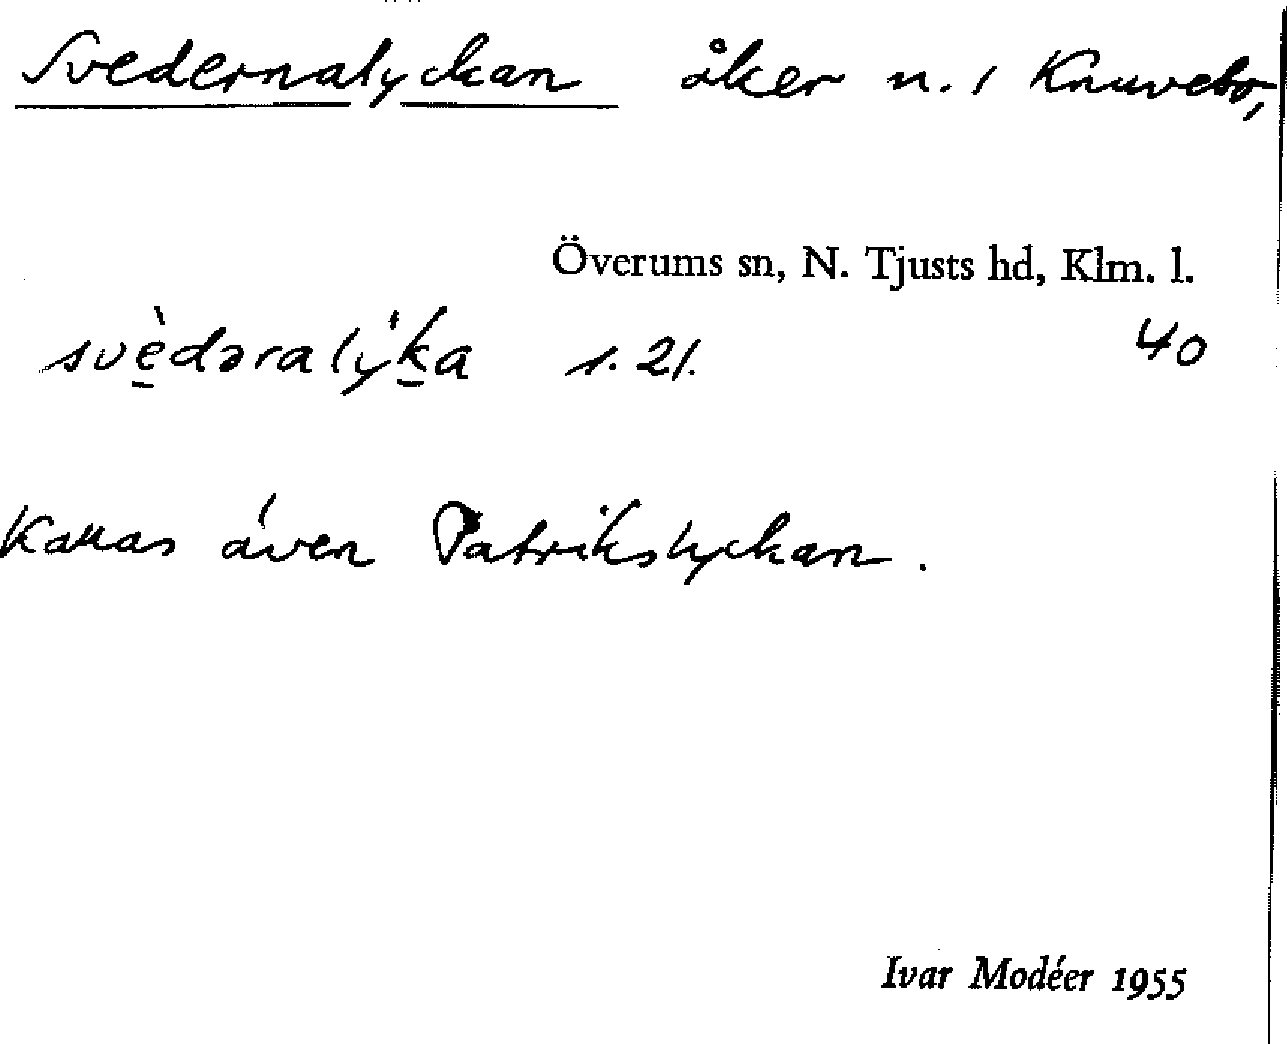 Svedernalyckan åker n. i Knuvebo,
Överums sn, N. Tjusts hd, Klm. l.
svèdəralýka s. 21. 40
Kallas även Patrikslyckan.
Ivar Modéer 1955